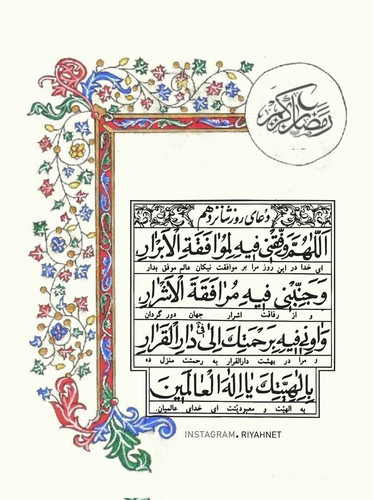 رمضان الکریم
دعای روز شانزدهم
اَللّهُمَّ وَفِّقْنی فیهِ لِمُوافَقَةِ الْاَبْرارِ
ای خدا در این روز مرا بر موافقت نیکان عالم موفق بدار
وَجَنِّبْنی فیهِ مُرافَقَةَ الْاَشْرارِ
و از رفاقت اشرار جهان دور گردان
وَاوِنی فیهِ بِرَحْمَتِكَ اِلی فی دارِ الْقَرارِ
و مرا در بهشت دارالقرار به رحمتت منزل ده
بِاِلهِیَّتِكَ یا اِلهَ الْعالَمینَ
به الهیت و معبودیتت ای خدای عالمیان.
INSTAGRAM. RIYAHNET